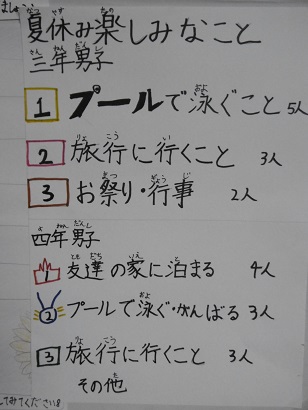 夏休み楽しみなこと
三年男子
1 プールで泳ぐこと 5人
2 旅行に行くこと 3人
3 お祭り・行事 2人
四年男子
1 友達の家に泊まる 4人
2 プールで泳ぐ・がんばる 3人
3 旅行に行くこと 3人
その他
してみてください